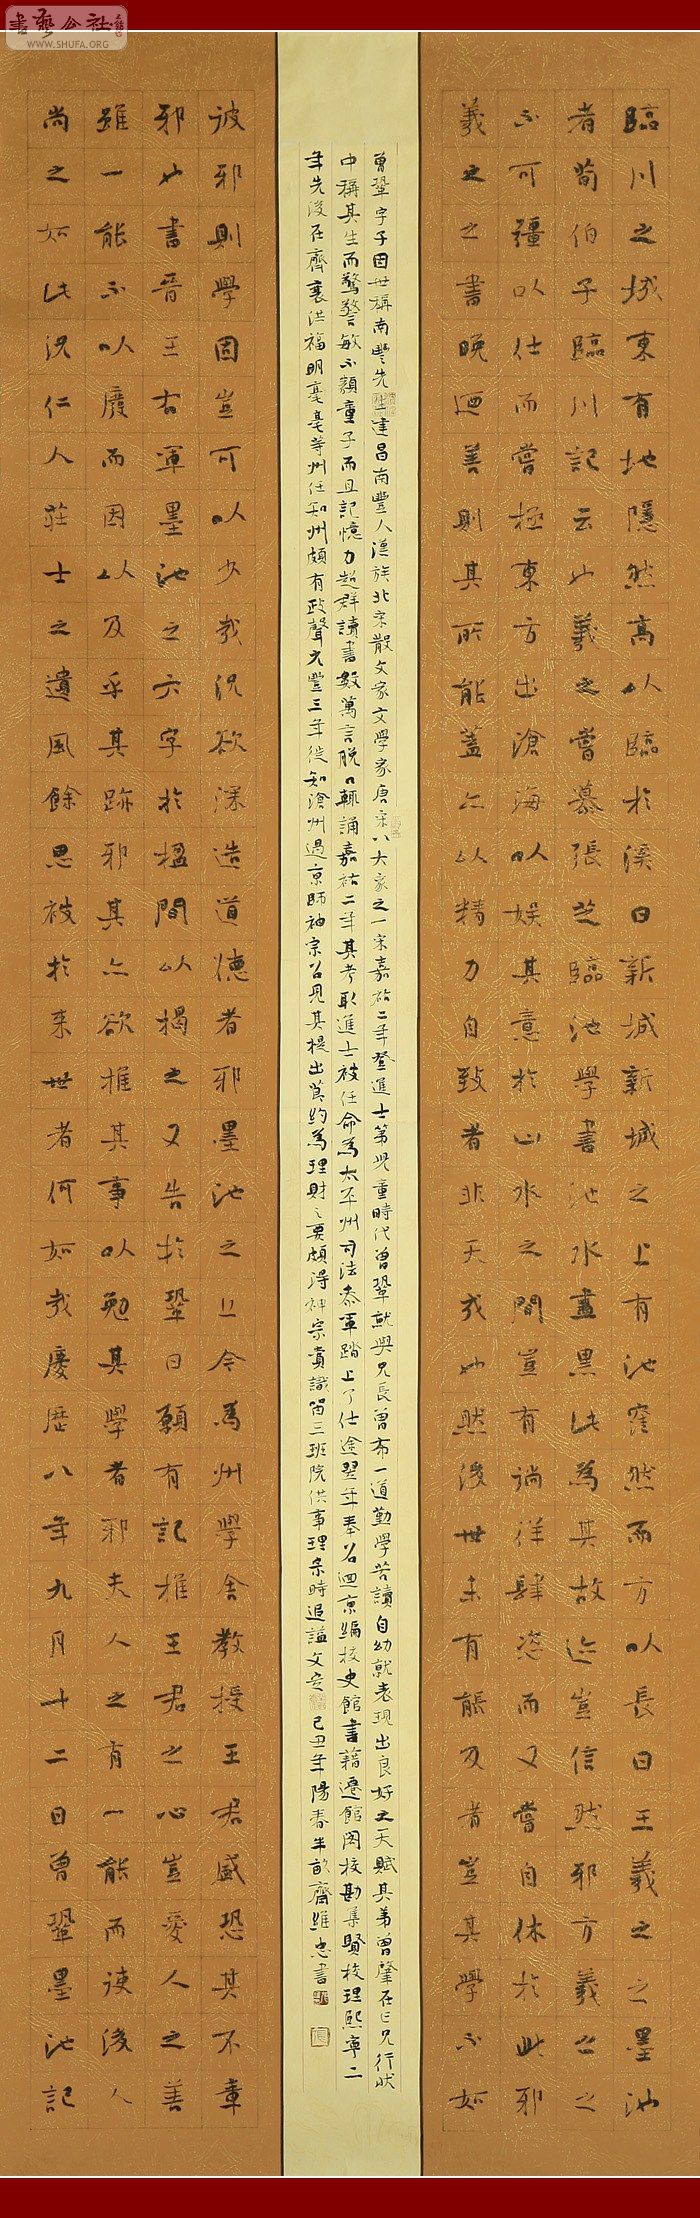 書藝公社
WWW.SHUFA.ORG
臨川之城東有地隱然高以臨於溪曰新城新城之上有池窪然而方以長曰王羲之之墨池
者荀伯子臨川記云也羲之嘗慕張芝臨池學書池水盡黑此為其故迹豈信然邪方羲之之
不可彊以仕而嘗極東方出滄海以娛其意於山水之間豈有徜徉肆恣而又嘗自休於此邪
羲之之書晚迺善則其所能蓋亦以精力自致者非天成也然後世未有能及者豈其學不如
曾鞏字子固世稱南豐先生建昌南豐人漢族北宋散文家文學家唐宋八大家之一宋嘉祐二年登進士第兒童時代曾鞏就與兄長曾布一道勤學苦讀自幼就表現出良好之天賦其弟曾肇在亡兄行狀
中稱其生而驚警敏不類童子而且記憶力超群讀書數萬言脫口輒誦嘉祐二年其考取進士被任命為太平州司法參軍踏上了仕途翌年奉召迴京編校史館書籍遷館閣校勘集賢校理熙寧二
年先後在齊襄洪福明亳等州任知州頗有政聲元豐三年徙知滄州過京師神宗召見其提出節約為理財之要頗得神宗賞識留三班院供事理宗時追謚文定己丑年陽春半畝齊維忠書
彼邪則學固豈可以少哉況欲深造道德者邪墨池之上今為州學舍教授王君盛恐其不章
邪也書晉王右軍墨池之六字於楹間以揭之又告於鞏曰願有記推王君之心豈愛人之善
雖一能不以廢而因以及乎其跡邪其亦欲推其事以勉其學者邪夫人之有一能而使後人
尚之如此況仁人莊士之遺風餘思被於來世者何如哉慶歷八年九月十二日曾鞏墨池記